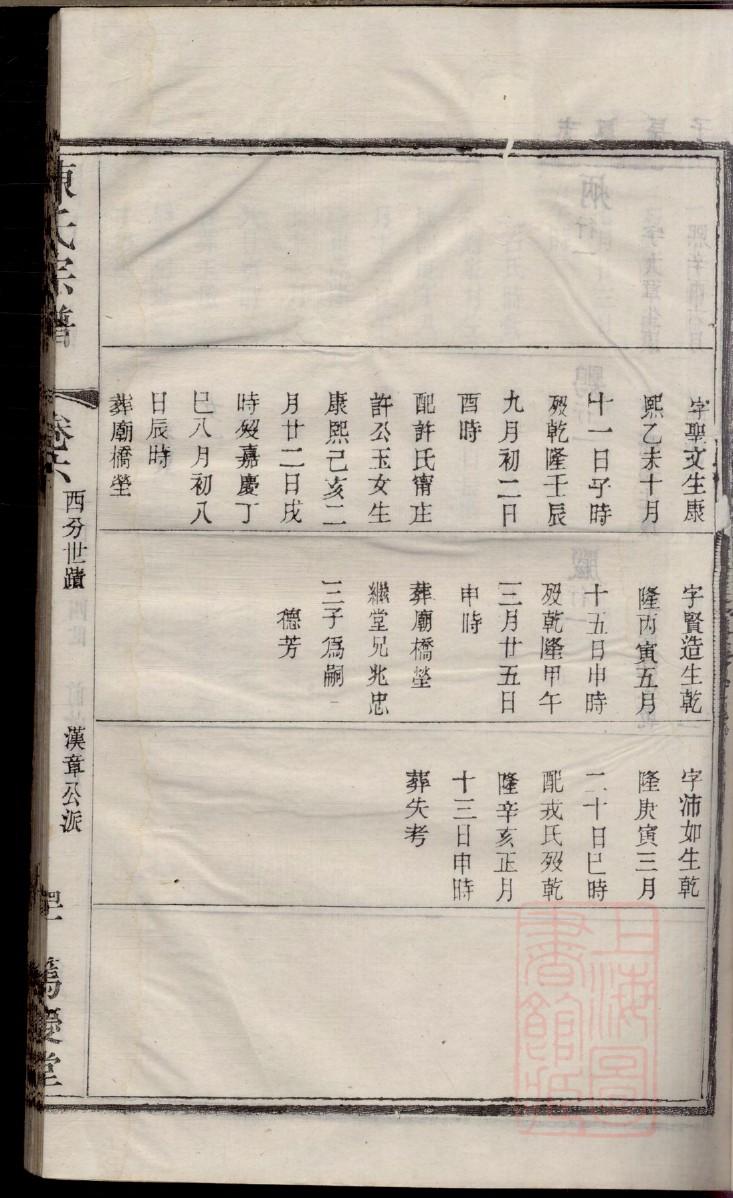 字聖文生康
熙乙未十月
十一日子時
歿乾隆壬辰
九月初二日
酉時
配許氏甯庄
許公玉女生
康熙己亥二
月廿二日戌
時歿嘉慶丁
巳八月初八
日辰時
葬廟橋塋
字賢造生乾
隆丙寅五月
十五日申時
歿乾隆甲午
三月廿五日
申時
葬廟橋塋
繼堂兄兆忠
三子爲嗣
德芳
字沛如生乾
隆庚寅三月
二十日巳時
配戎氏歿乾
隆辛亥正月
十三日申時
葬失考
陳氏宗譜
卷六
西分世蹟
漢章公派
篤慶堂
上海圖書館藏